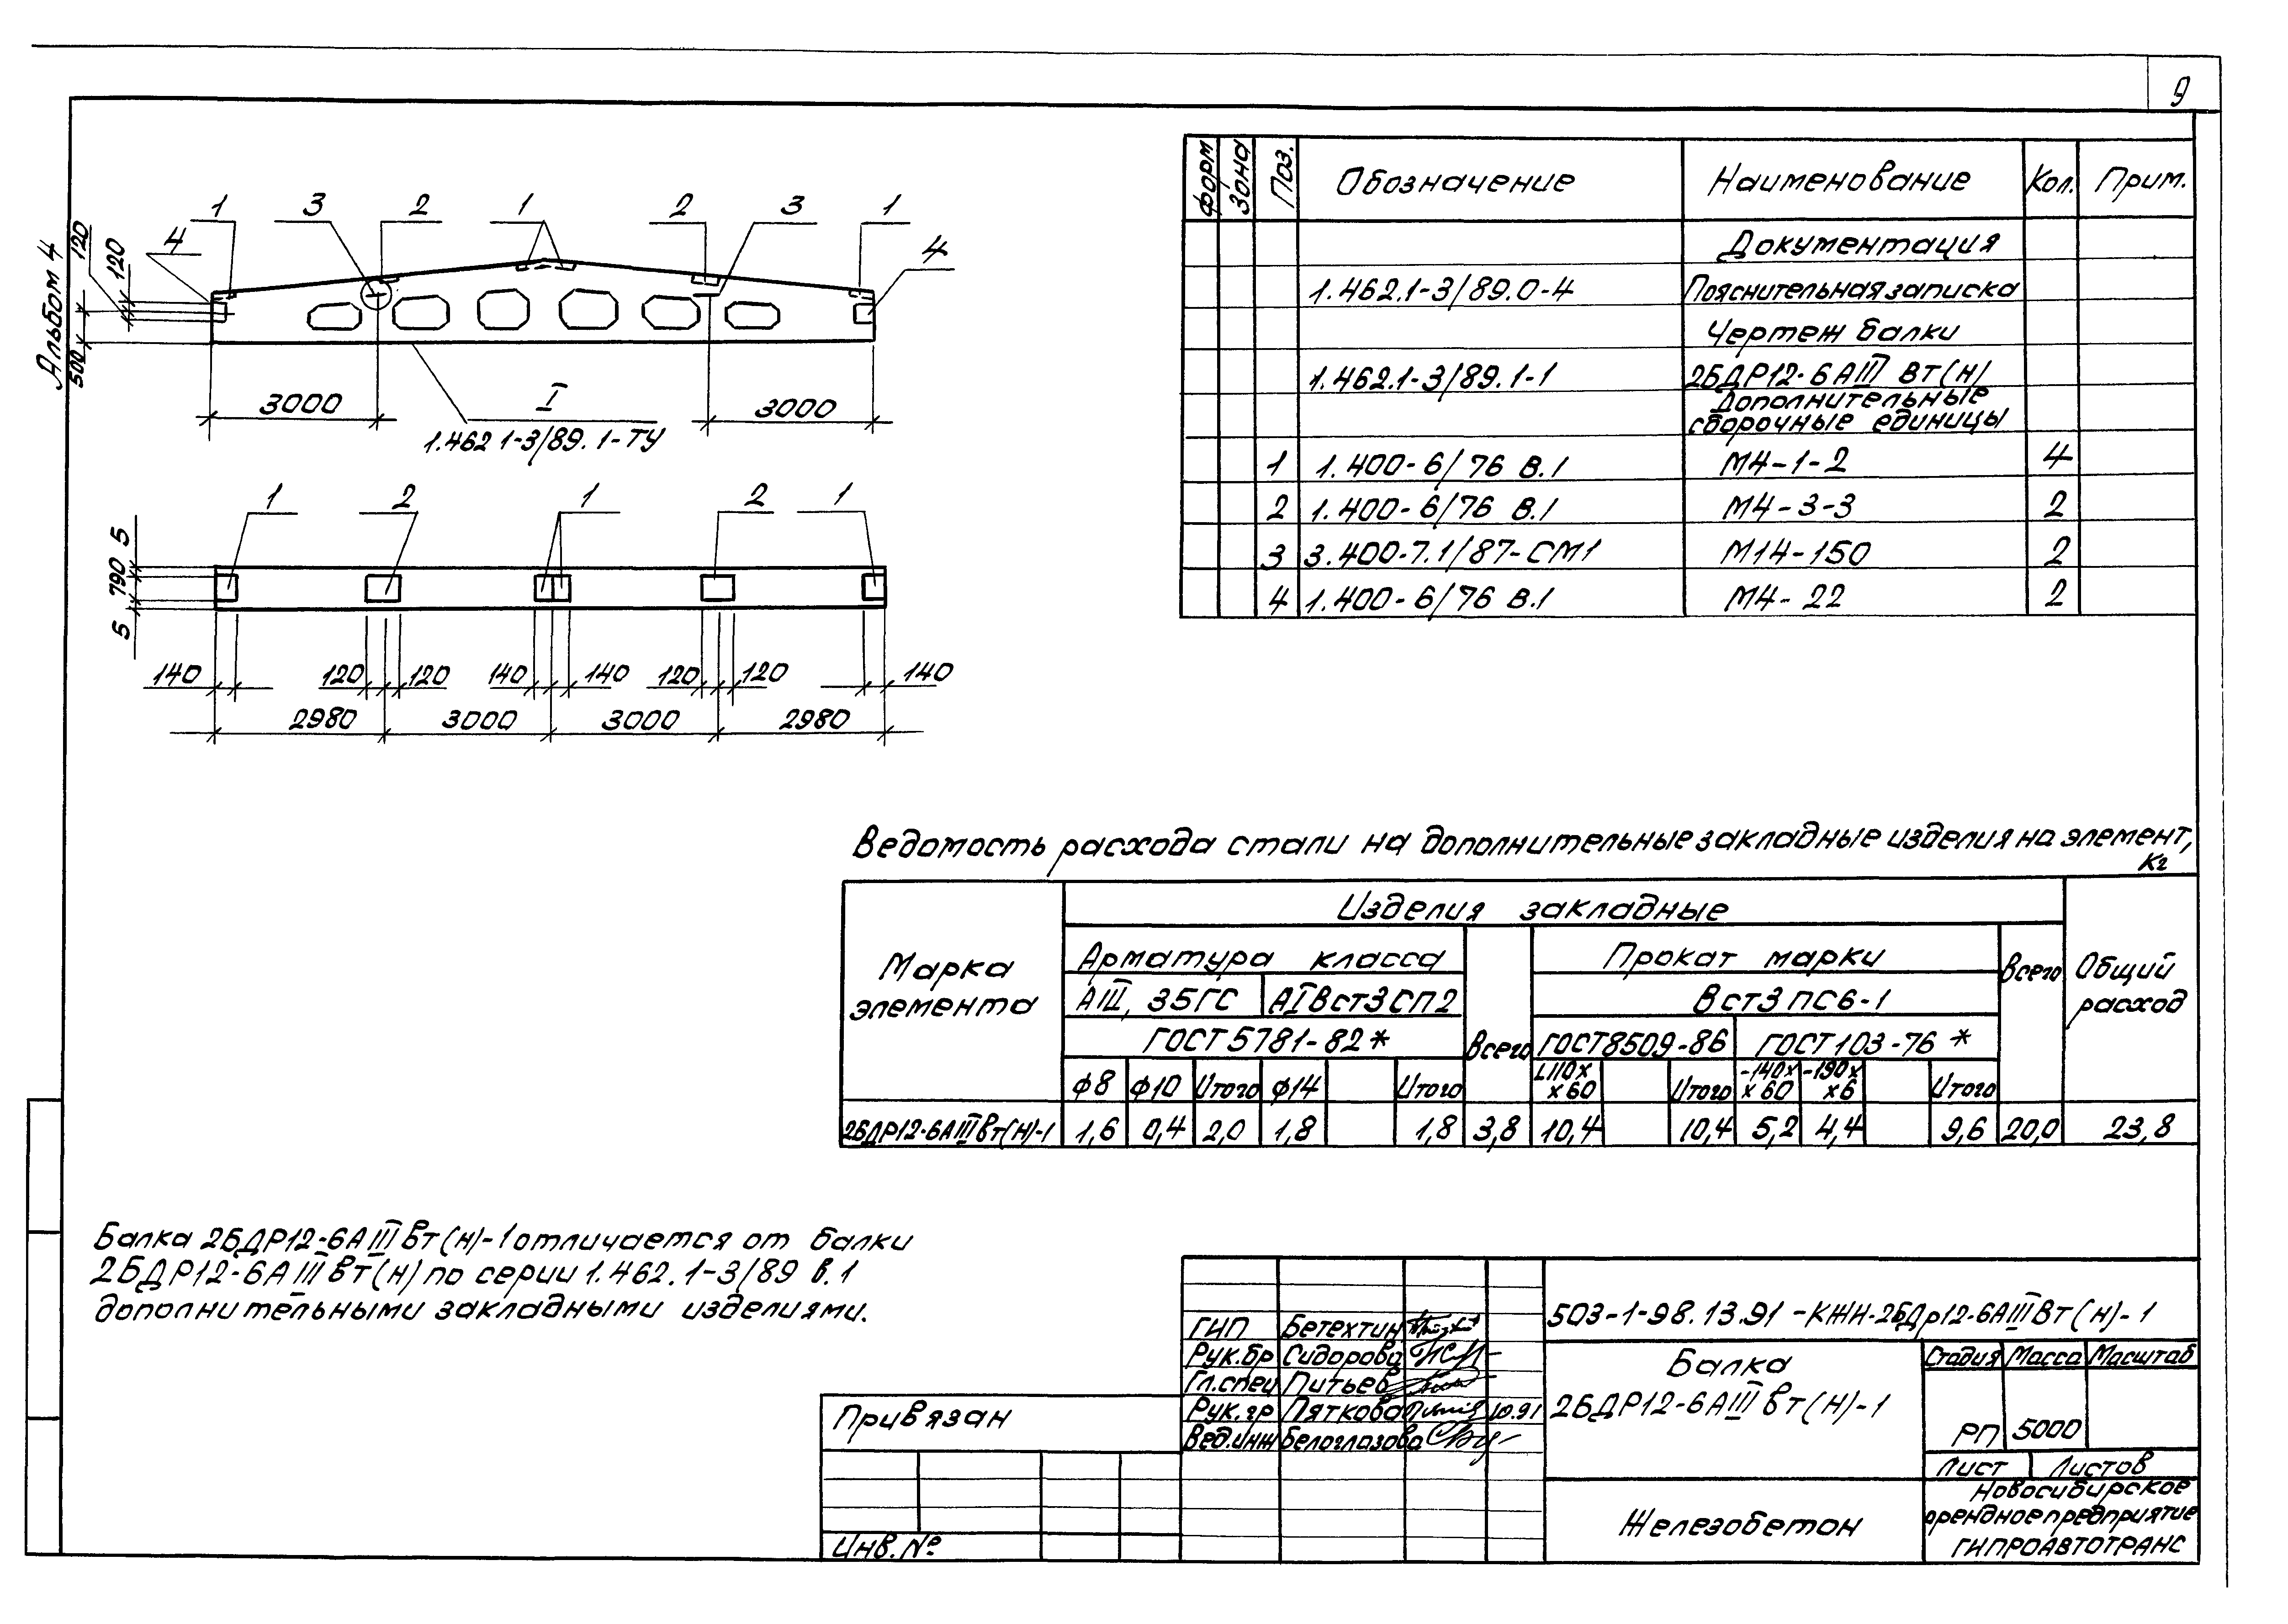 9
Альбом 4
1 3 2 1 2 3 1
4 4
120 120 500
3000 3000
I
1.462 1-3/89. 1-ТУ
1 2 1 2 1
5 190 5
140 120 120 140 140 120 120 140
2980 3000 3000 2980
форм Зона Поз. Обозначение Наименование Кол. Прим.
Документация
1.462.1-3/89.0-4 Пояснительная записка
Чертеж балки
1.462.1-3/89.1-1 2БДР12-6АIII Вт(н)
Дополнительные
сборочные единицы
1 1.400-6/76 В.1 М4-1-2 4
2 1.400-6/76 В.1 М4-3-3 2
3 3.400-7.1/87-СМ1 М14-150 2
4 1.400-6/76 В.1 М4-22 2
Ведомость расхода стали на дополнительные закладные изделия на элемент,
кг
Марка элемента Изделия закладные Общий расход
Арматура класса Всего Прокат марки Всего
АIII, 35ГС АI Вст3СП2 Вст3 ПС6-1
ГОСТ 5781-82* ГОСТ 8509-86 ГОСТ 103-76*
ф8 ф10 Итого ф14 Итого L110х х60 Итого -140х х60 -190х х6 Итого
2БДР12-6АIIIВт(Н)-1 1,6 0,4 2,0 1,8 1,8 3,8 10,4 10,4 5,2 4,4 9,6 20,0 23,8
Балка 2БДР12-6АIIIВт(н)-1 отличается от балки
2БДР12-6АIIIВт(н) по серии 1.462.1-3/89 в.1
дополнительными закладными изделиями.
Привязан
Инв.№
ГИП Бетехтин
Рук.бр Сидорова
Гл.спец Питьев
Рук.гр Пяткова 10.91
Вед.инж Белоглазова
503-1-98.13.91-КЖИ-2БДр12-6АIIIВт(н)-1
Балка
2БДР12-6АIIIВт(Н)-1
Стадия Масса Масштаб
РП 5000
Лист Листов
Железобетон
Новосибирское
арендное предприятие
ГИПРОАВТОТРАНС